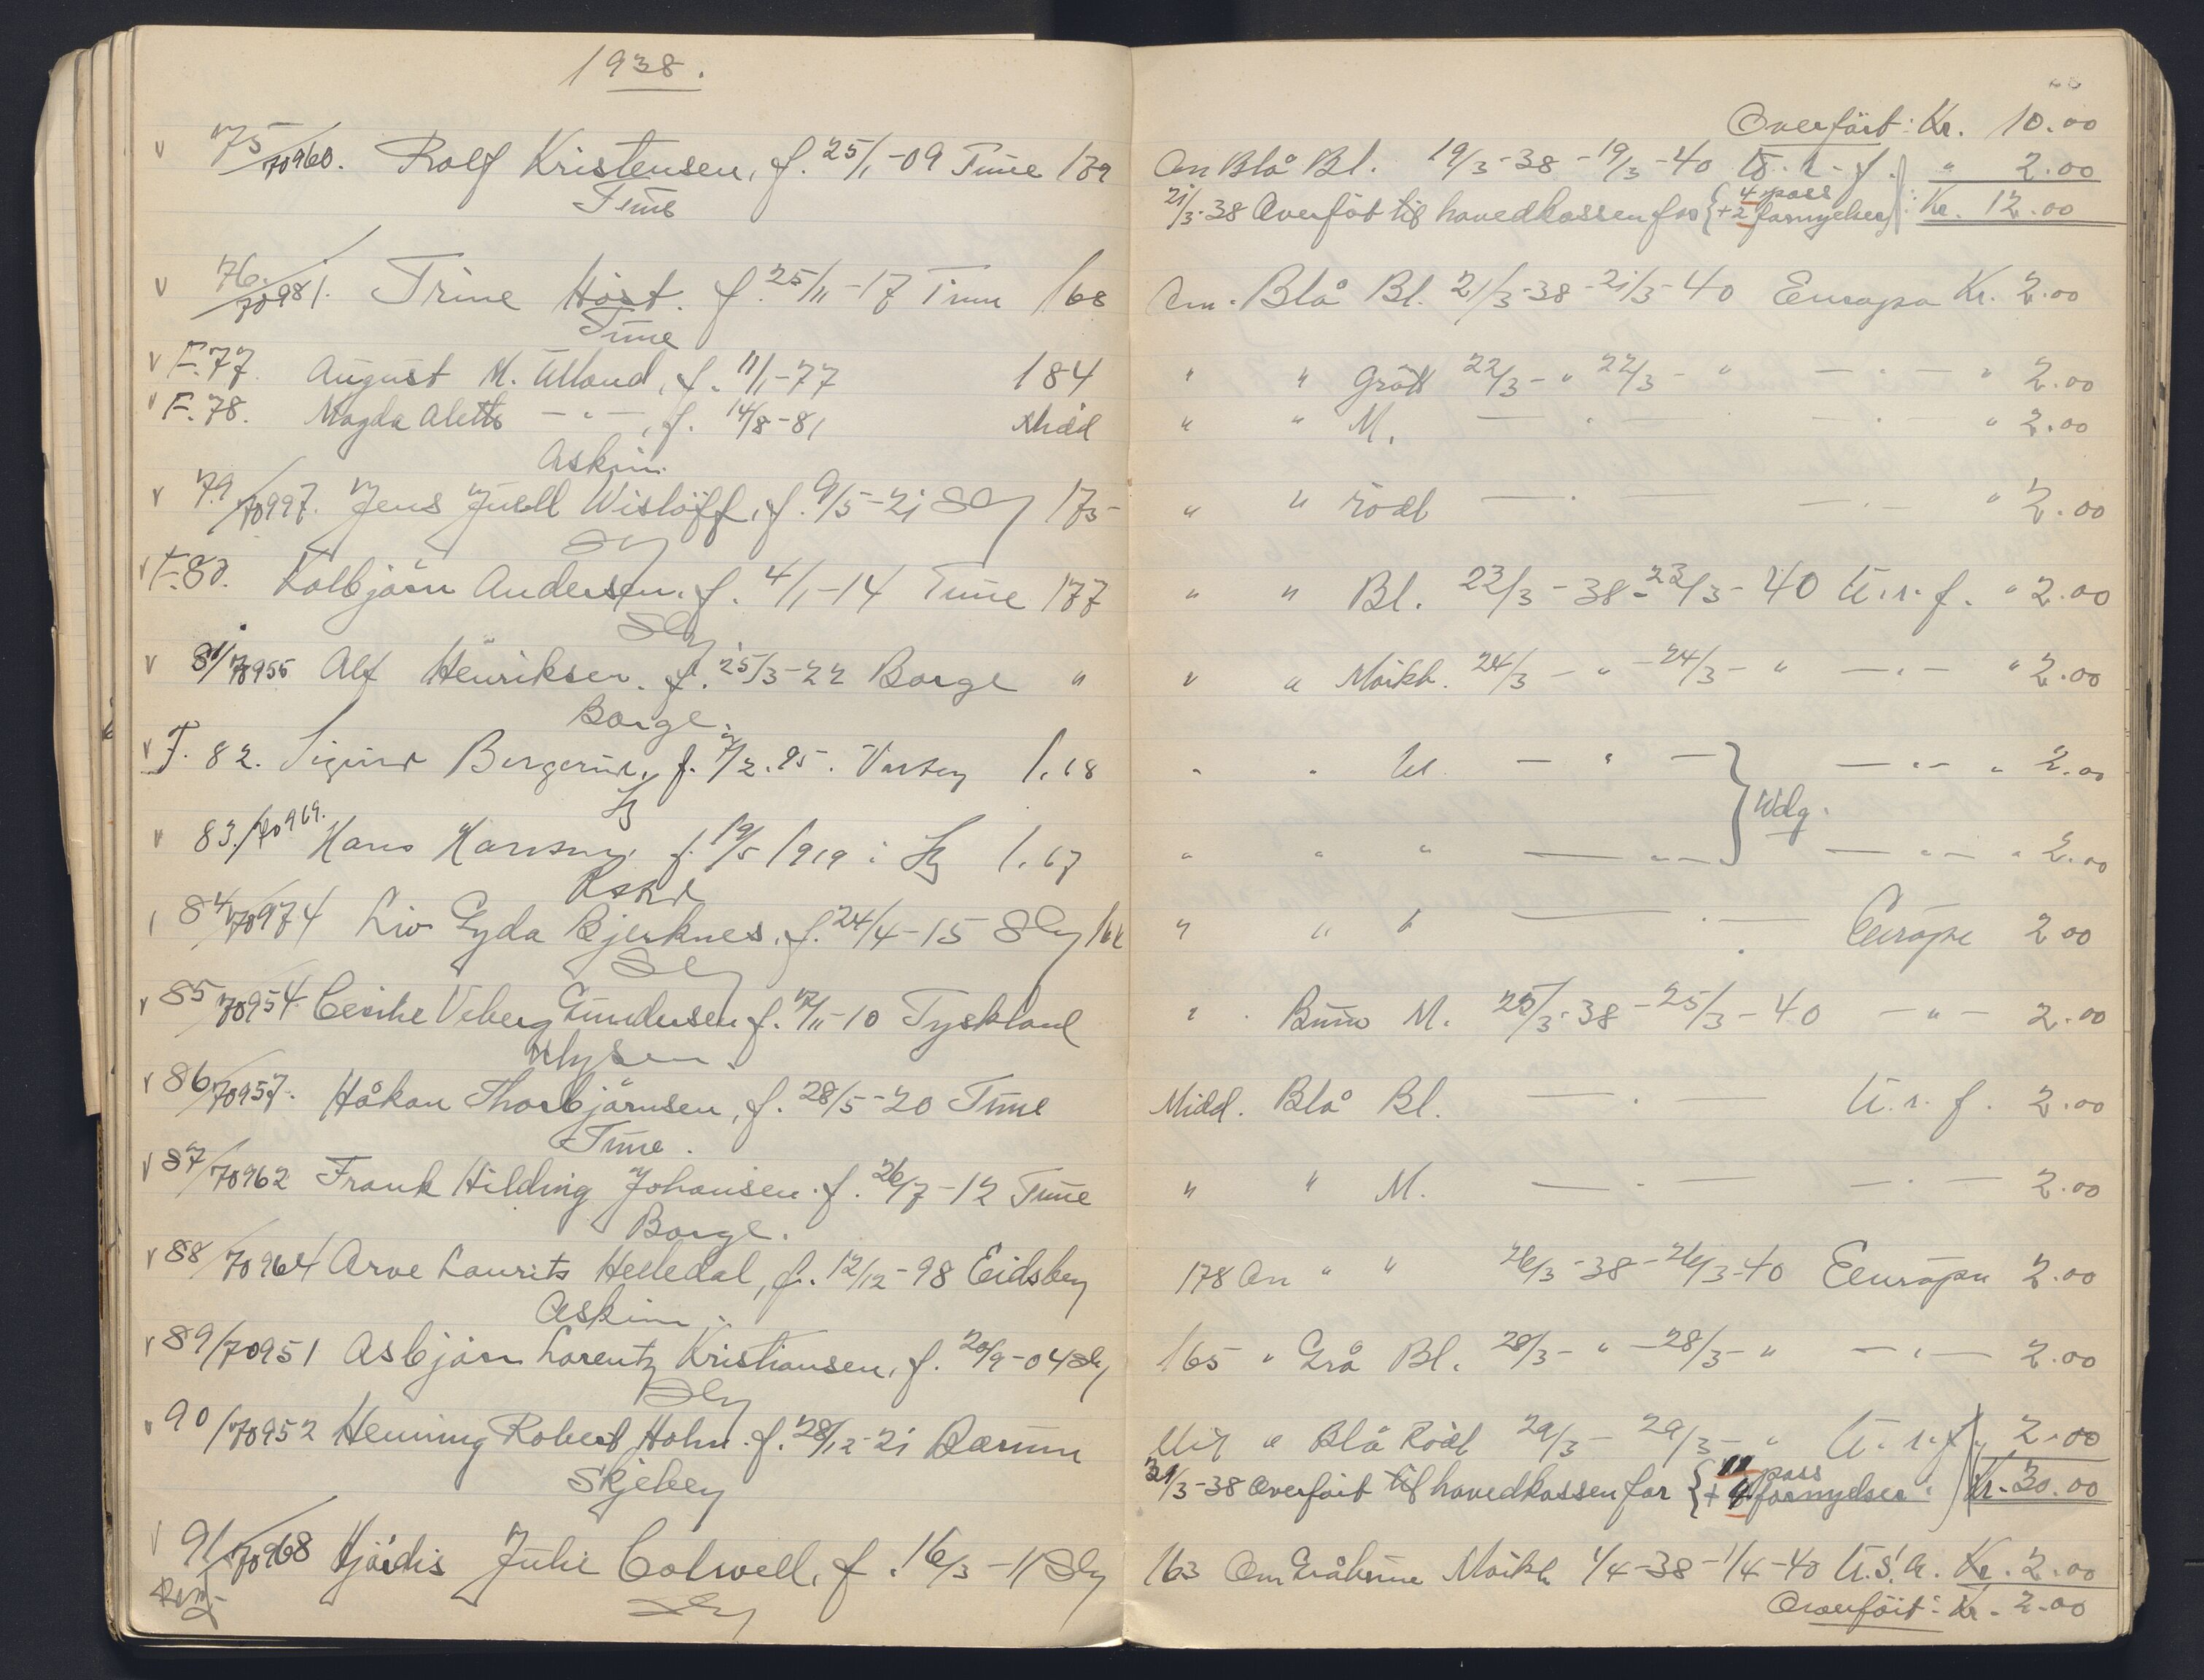 1938.
75/70960. Rolf Kristensen, f. 25/1-09 Tune 189
Tune
76./70981. Trine Höst. f. 25/11-17 Tune 168
Tune
F. 77. August M. Ulland, f. 11/1-77 184
F. 78. Magda Aleth — " —, f. 14/8-81 Midd
Askim
79/70997. Jens Juell Wislöff, f. 9/5-21 Sbg 175
Sbg
F. 80. Kolbjörn Andersen. f. 4/1-14 Tune 177
Sbg
81/70955 Alf Henriksen. f. 25/3-22 Borge "
Borge.
F. 82. Sigurd f. 7/2. 95. 1.68
83./70969. Hans Hansen, f. 19/5 1919 : 1.67
84/70974 Liv Gyda Bjerknes. f. 24/4-15 Sbg
Sbg
85/70954 Veberg Gundersen f. 7/11-10 Tyskland
86/70957. Håkon Thorbjörnsen, f. 28/5-20 Tune
Tune.
87/70962 Frank Hilding Johansen. f. 26/7-12 Tune
Borge.
88/70964 Arve Laurits Helledal, f. 12/12-98 Eidsberg
Askim.
89/70951 Asbjörn Lorentz Kristiansen, f. 20/9-04 Sbg
Sbg
90/70952 Henning Robert Holm. f. 28/12-21 Bærum
Skjeberg
91/70968 Hjördis Julie Colwell, f. 16/3-11 Sbg
Sbg
Overfört: Kr. 10.00
Om Blå Bl. 19/3-38-19/3-40 U. r. f. " 2.00
21/3-38 Overfört til hovedkassen for { 4 pass + 2 fornyelser } : Kr. 12.00
Om. Blå Bl. 21/3-38-21/3-40 Europa Kr. 2.00
" " Grått 22/3- " 22/3- " — " — " 2.00
" " M. — " — — " — " 2.00
" " rödl — " — — " — " 2.00
" " Bl. 23/3-38-23/3-40 U. r. f. " 2.00
" " Mörkb. 24/3- " -24/3- " — " — " 2.00
" " bl. — " — — " — " 2.00
Udg.
" " " — " — — " — " 2.00
" " " — " — Europa 2 00
" Brune M. 25/3-38-25/3-40 — " — 2.00
Midd. Blå Bl. — " — U. r. f. 2.00
" " M. — " — — " — 2.00
178 Om " " 26/3-38-26/3-40 Europa 2.00
165 " Grå Bl. 28/3- " -28/3- " — " — 2.00
" Blå Rödl 29/3- 29/3- " U. r. f. 2.00
31/3-38 Overfört til hovedkassen for { 11 pass + 4 fornyelser } Kr. 30.00
163 Om Gråbrune Mörkb 1/4-38-1/4-40 U.S.A. Kr. 2.00
Overfört: Kr. 2.00